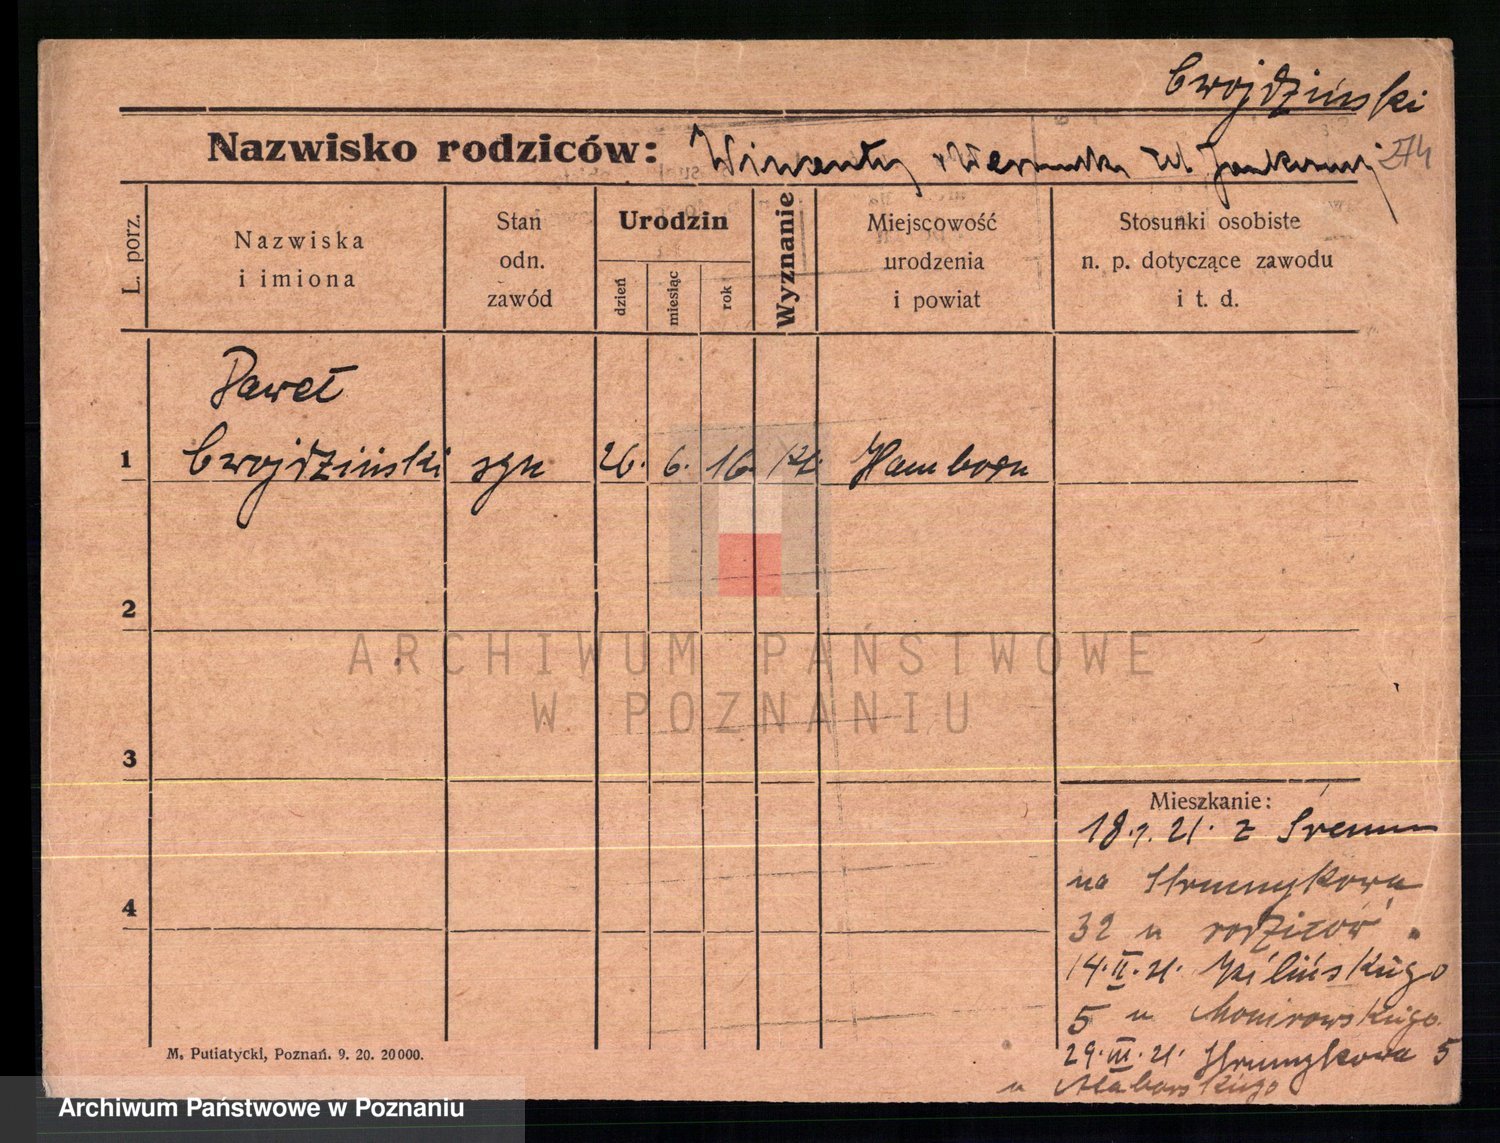 Cwojdziński
Nazwisko rodziców: Wincenty i Weronika zd Jankowski 274
L. porz.
Nazwiska
i imiona
Stan
odn.
zawód
Urodzin
dzień
miesiąc
rok
Wyznanie
Miejscowość
urodzenia
i powiat
Stosunki osobiste
n. p. dotyczące zawodu
i t. d.
Paweł
1 Cwojdziński syn 26. 6. 16. kt. Hamborn
2
3
4
Mieszkanie:
18.7.21. z Śremu
na Strumykowa
32 u rodziców.
14.II.21. Kilińskiego
5 u
29.III.21. Strumykowa 5
u
M. Putiatycki, Poznań. 9. 20. 20000.
ARCHIWUM PAŃSTWOWE
W POZNANIU
Archiwum Państwowe w Poznaniu